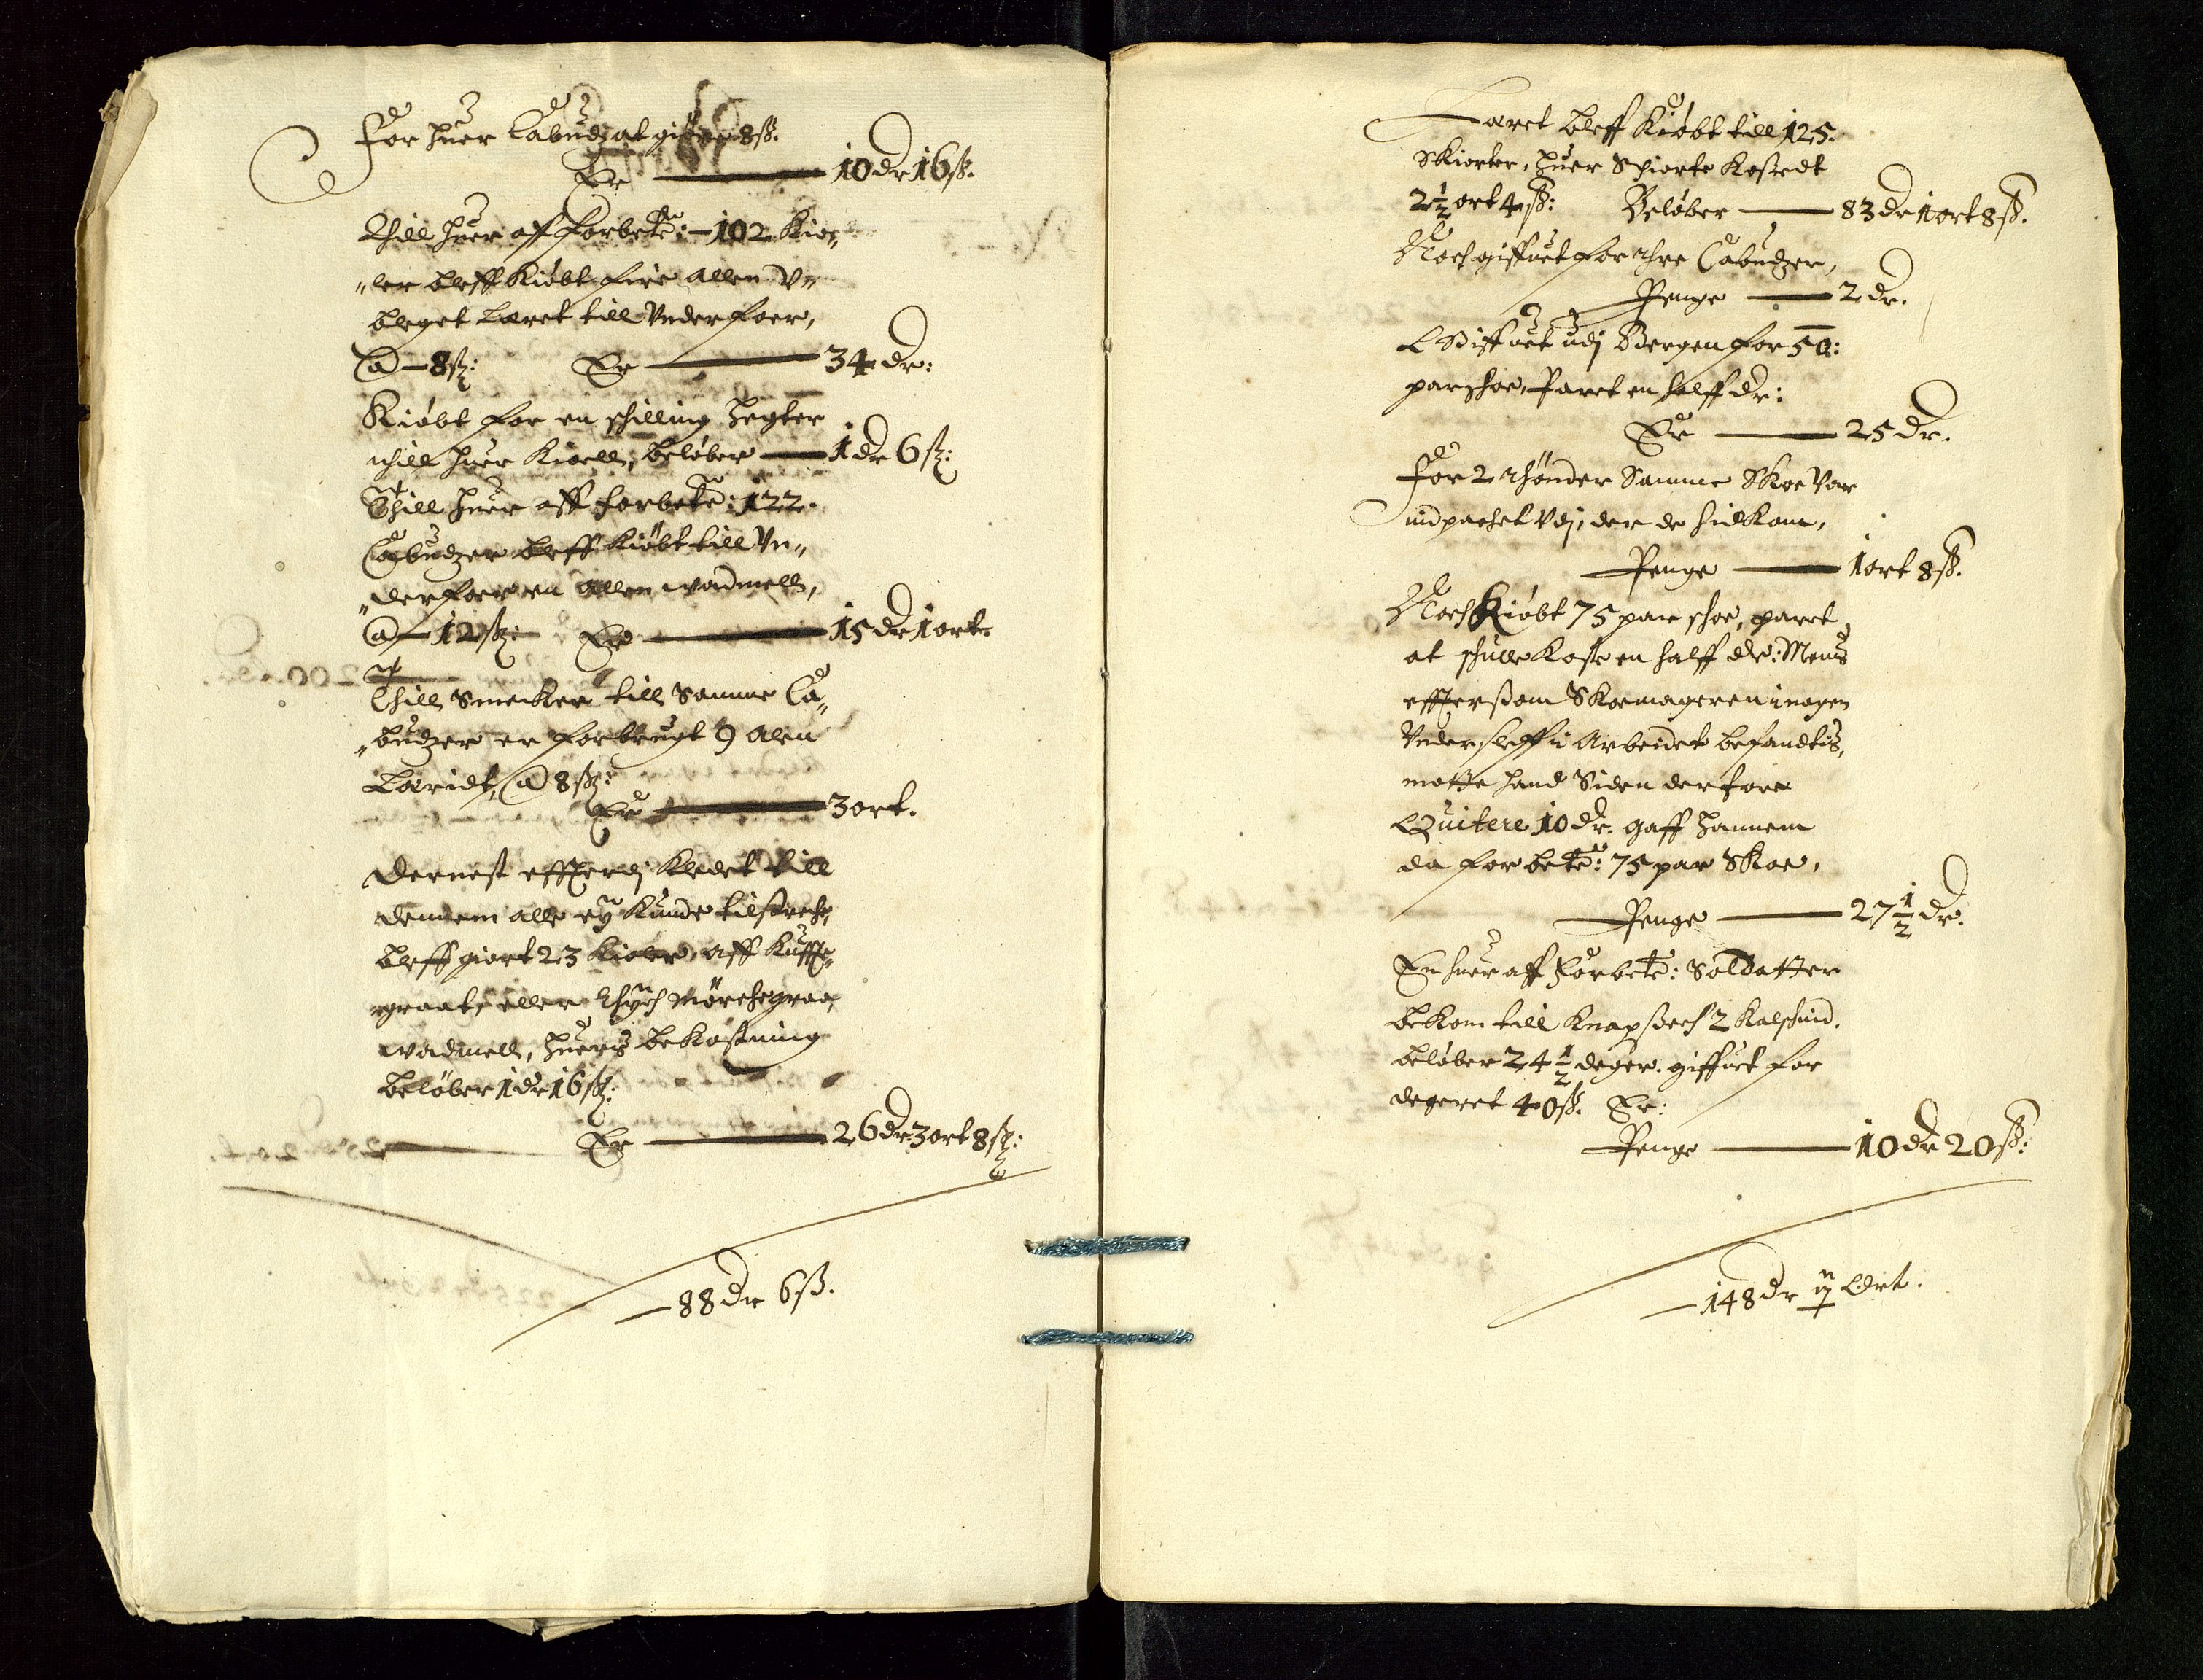 For huer Cabudz at giffue 8ß.
Er — 10 dr 16 ß.
Thill huer aff forbete: — 102 Kior„
„ler bleff Kiøbt fire allen V„
bleget Læret till Vnderfoer,
@ — 8 ß: Er — 34 dr:
Kiøbt for en schilling Hegter
thill huer Kioell, beløber — 1 dr 6 ß:
Thill huer aff forbete: 122.
Cabudzer bleff Kiøbt till Vn„
„derfoer en allen wadmell,
@ — 12 ß: Er — 15 dr 1 ort
Thill Smecker till Samme Ca„
„budzer er forbrugt 9 alen
Læridt, @ 8 ß:
Er — 3 ort.
Dernest effterdj Kledet till
dennem alle ey Kunde tilstreche,
bleff giort 23 kioler, aff Kuffte„
„graat, eller Thych Mørchegraa,
wadmell, huers bekostning
beløber 1 dr 16 ß:
Er — 26 dr 3 ort 8 ß:
— 88 dr 6 ß.
Læret bleff Kiøbt till 125.
Skiorter, huer Schiorte Kostedt
2½ ort 4 ß: Beløber — 83 dr 1 ort 8 ß.
Noch giffuet for thre Cabudzer,
Penge — 2 dr.
Giffuet udj Bergen for 50:
par schoe, Paret en halff dr:
Er — 25 dr.
For 2 thønder Samme Skoe var
indpachet Vdj, der de hidkom,
Penge — 1 ort 8 ß.
Noch Kiøbt 75 par schoe, paret
at schulle Koste en halff dlr: Mens
effterssom Skoemageren i nogen
Vnderslef i Arbeidet befandtis,
motte hand Siden derfore
Quitere 10 dr. gaff hannem
da for bete: 75 par Skoe,
Penge — 27 ½ dr.
En huer aff Forbete: Soldatter
bekom till Knapsech 2 Kalschind,
beløber 24 ½ deger. giffuet for
degeret 40 ß. Er:
Penge — 10 dr 20 ß:
— 148 dr Ort.